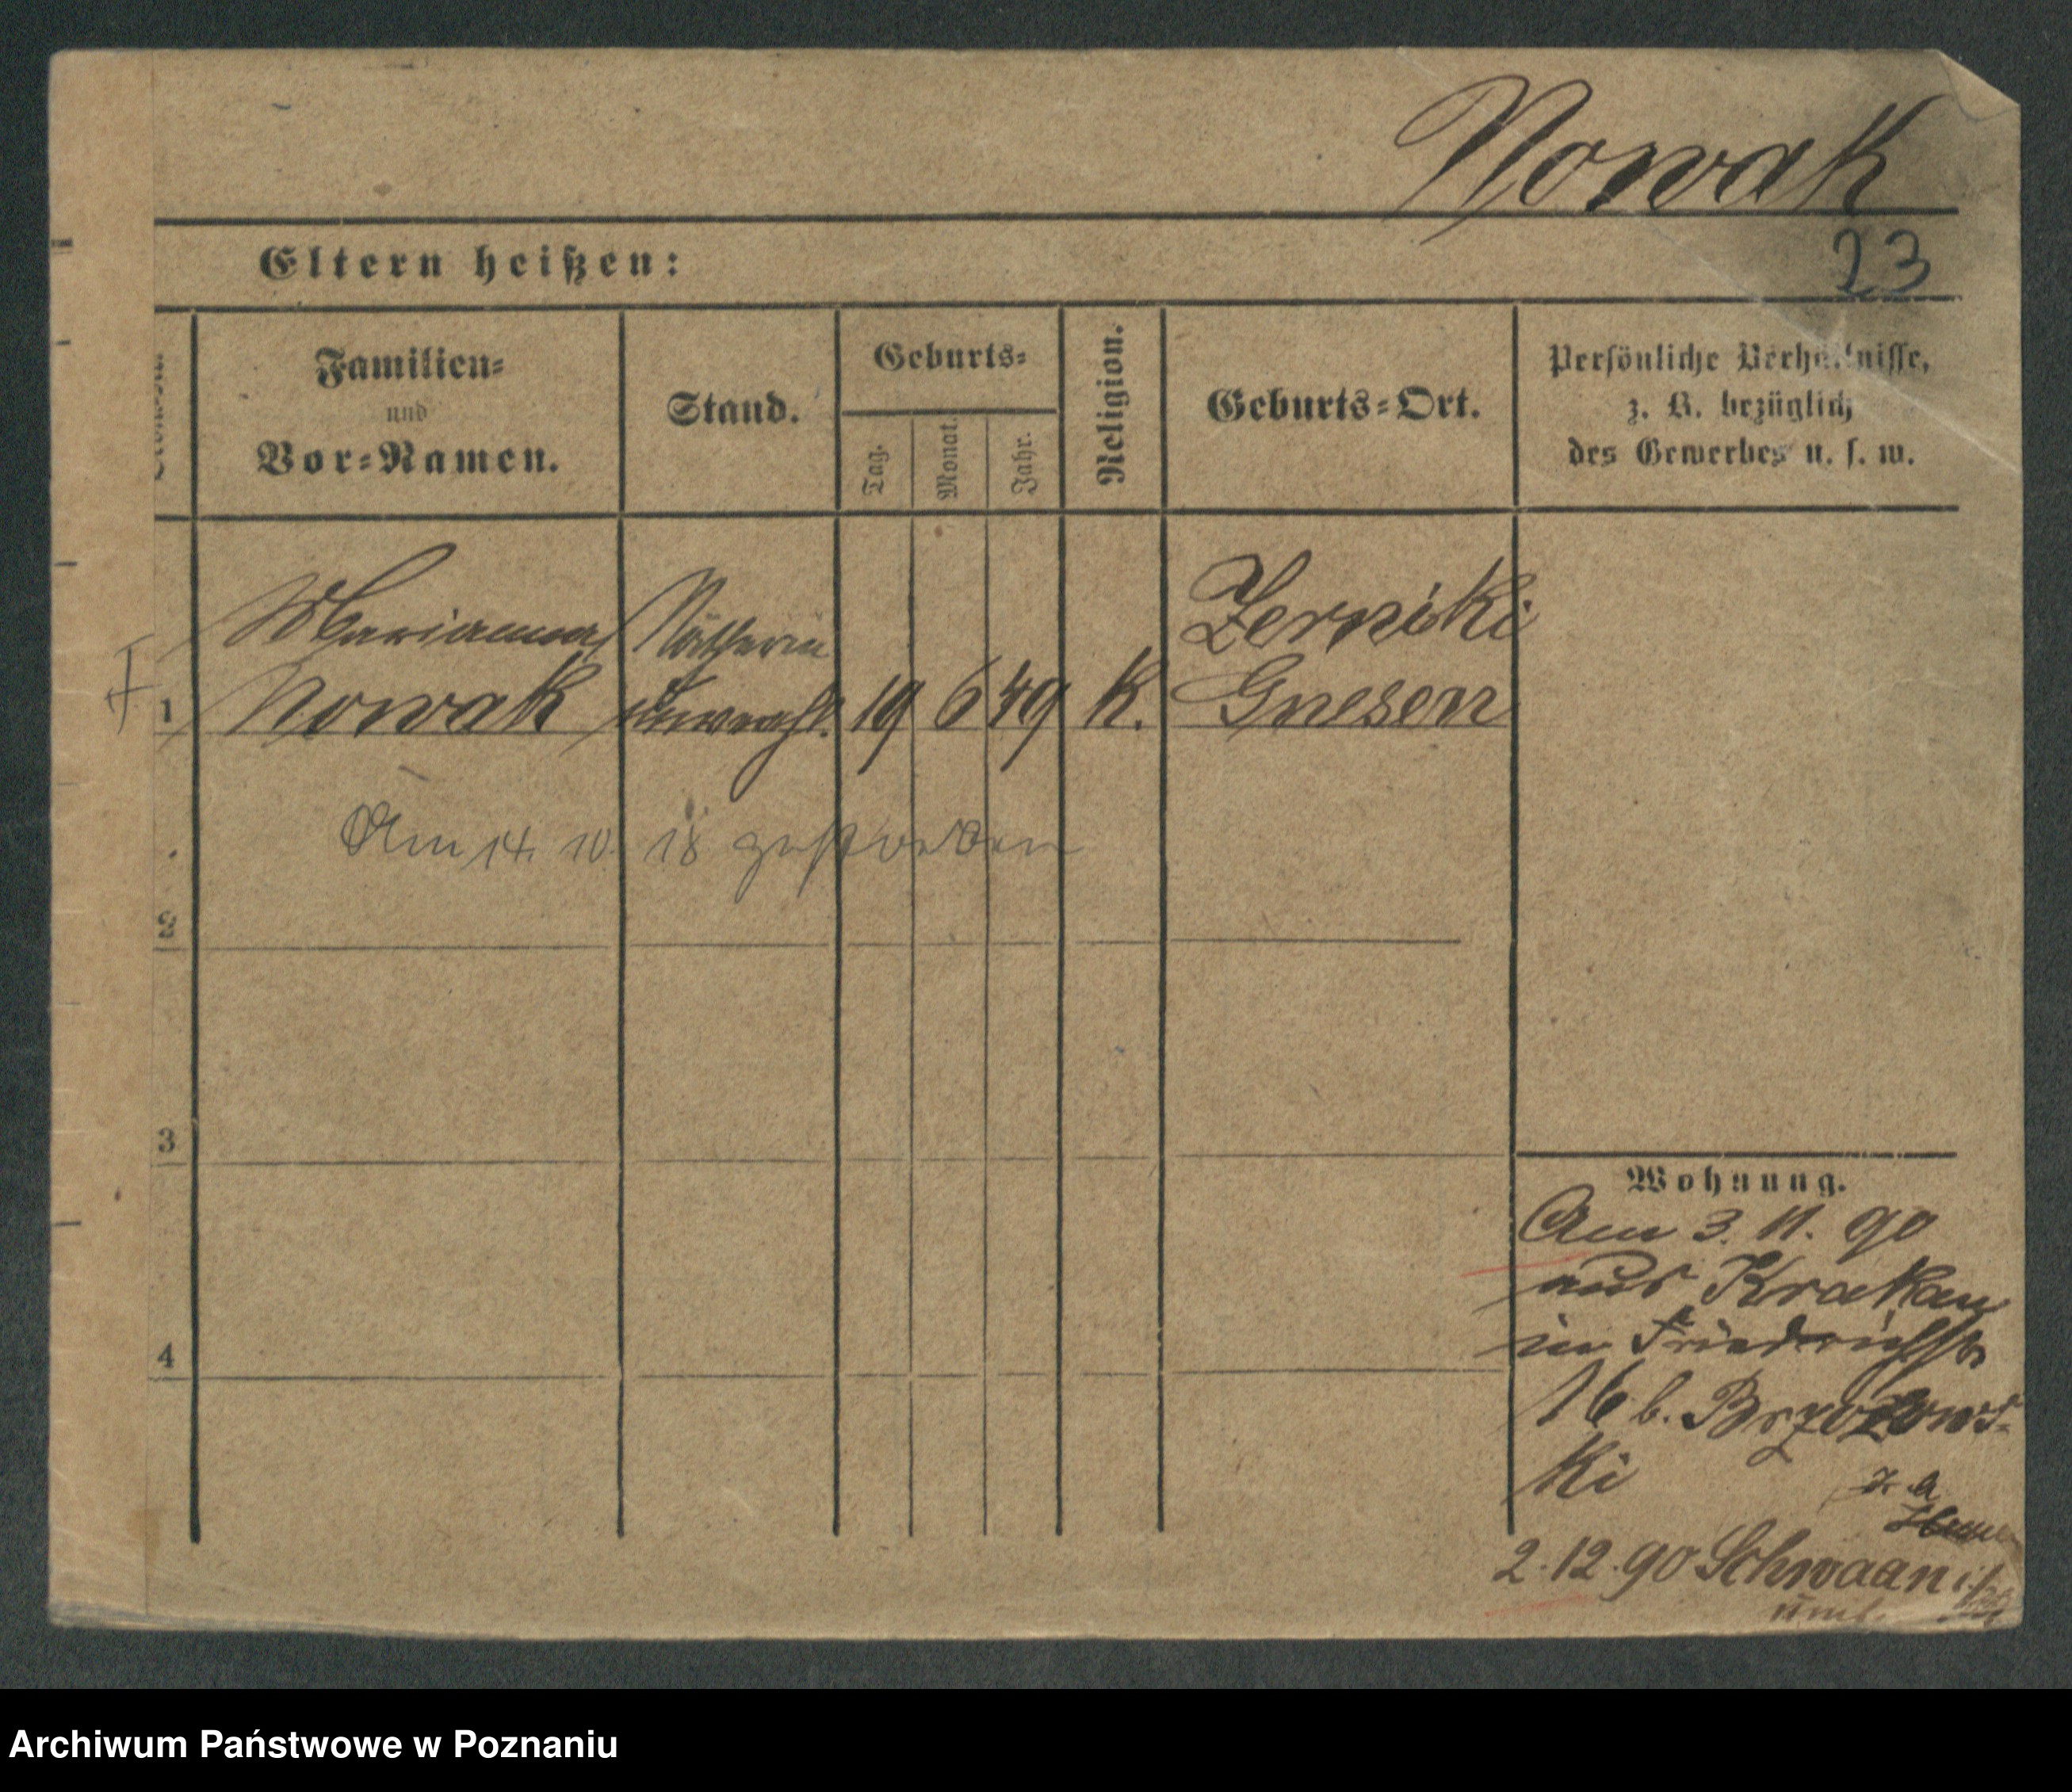 Nowak
23
Eltern heißen:
Familien=
und
Vor=Namen.
Stand.
Geburts=
Tag.
Monat.
Jahr.
Religion.
Geburts=Ort.
Persönliche Verhältnisse,
z. B. bezüglich
des Gewerbes u. s. w.
Marianna Näherin Zerniki
1 Nowak unverehl. 19 6 49 K. Gnesen
Am 14. 10. 18 gestorben
2
3
4
Wohnung.
Am 3. 11. 90
aus Krakau
in Friedrichstr
16 b. Brzozows-
ki
2. 12. 90 Schwaan
Archiwum Państwowe w Poznaniu